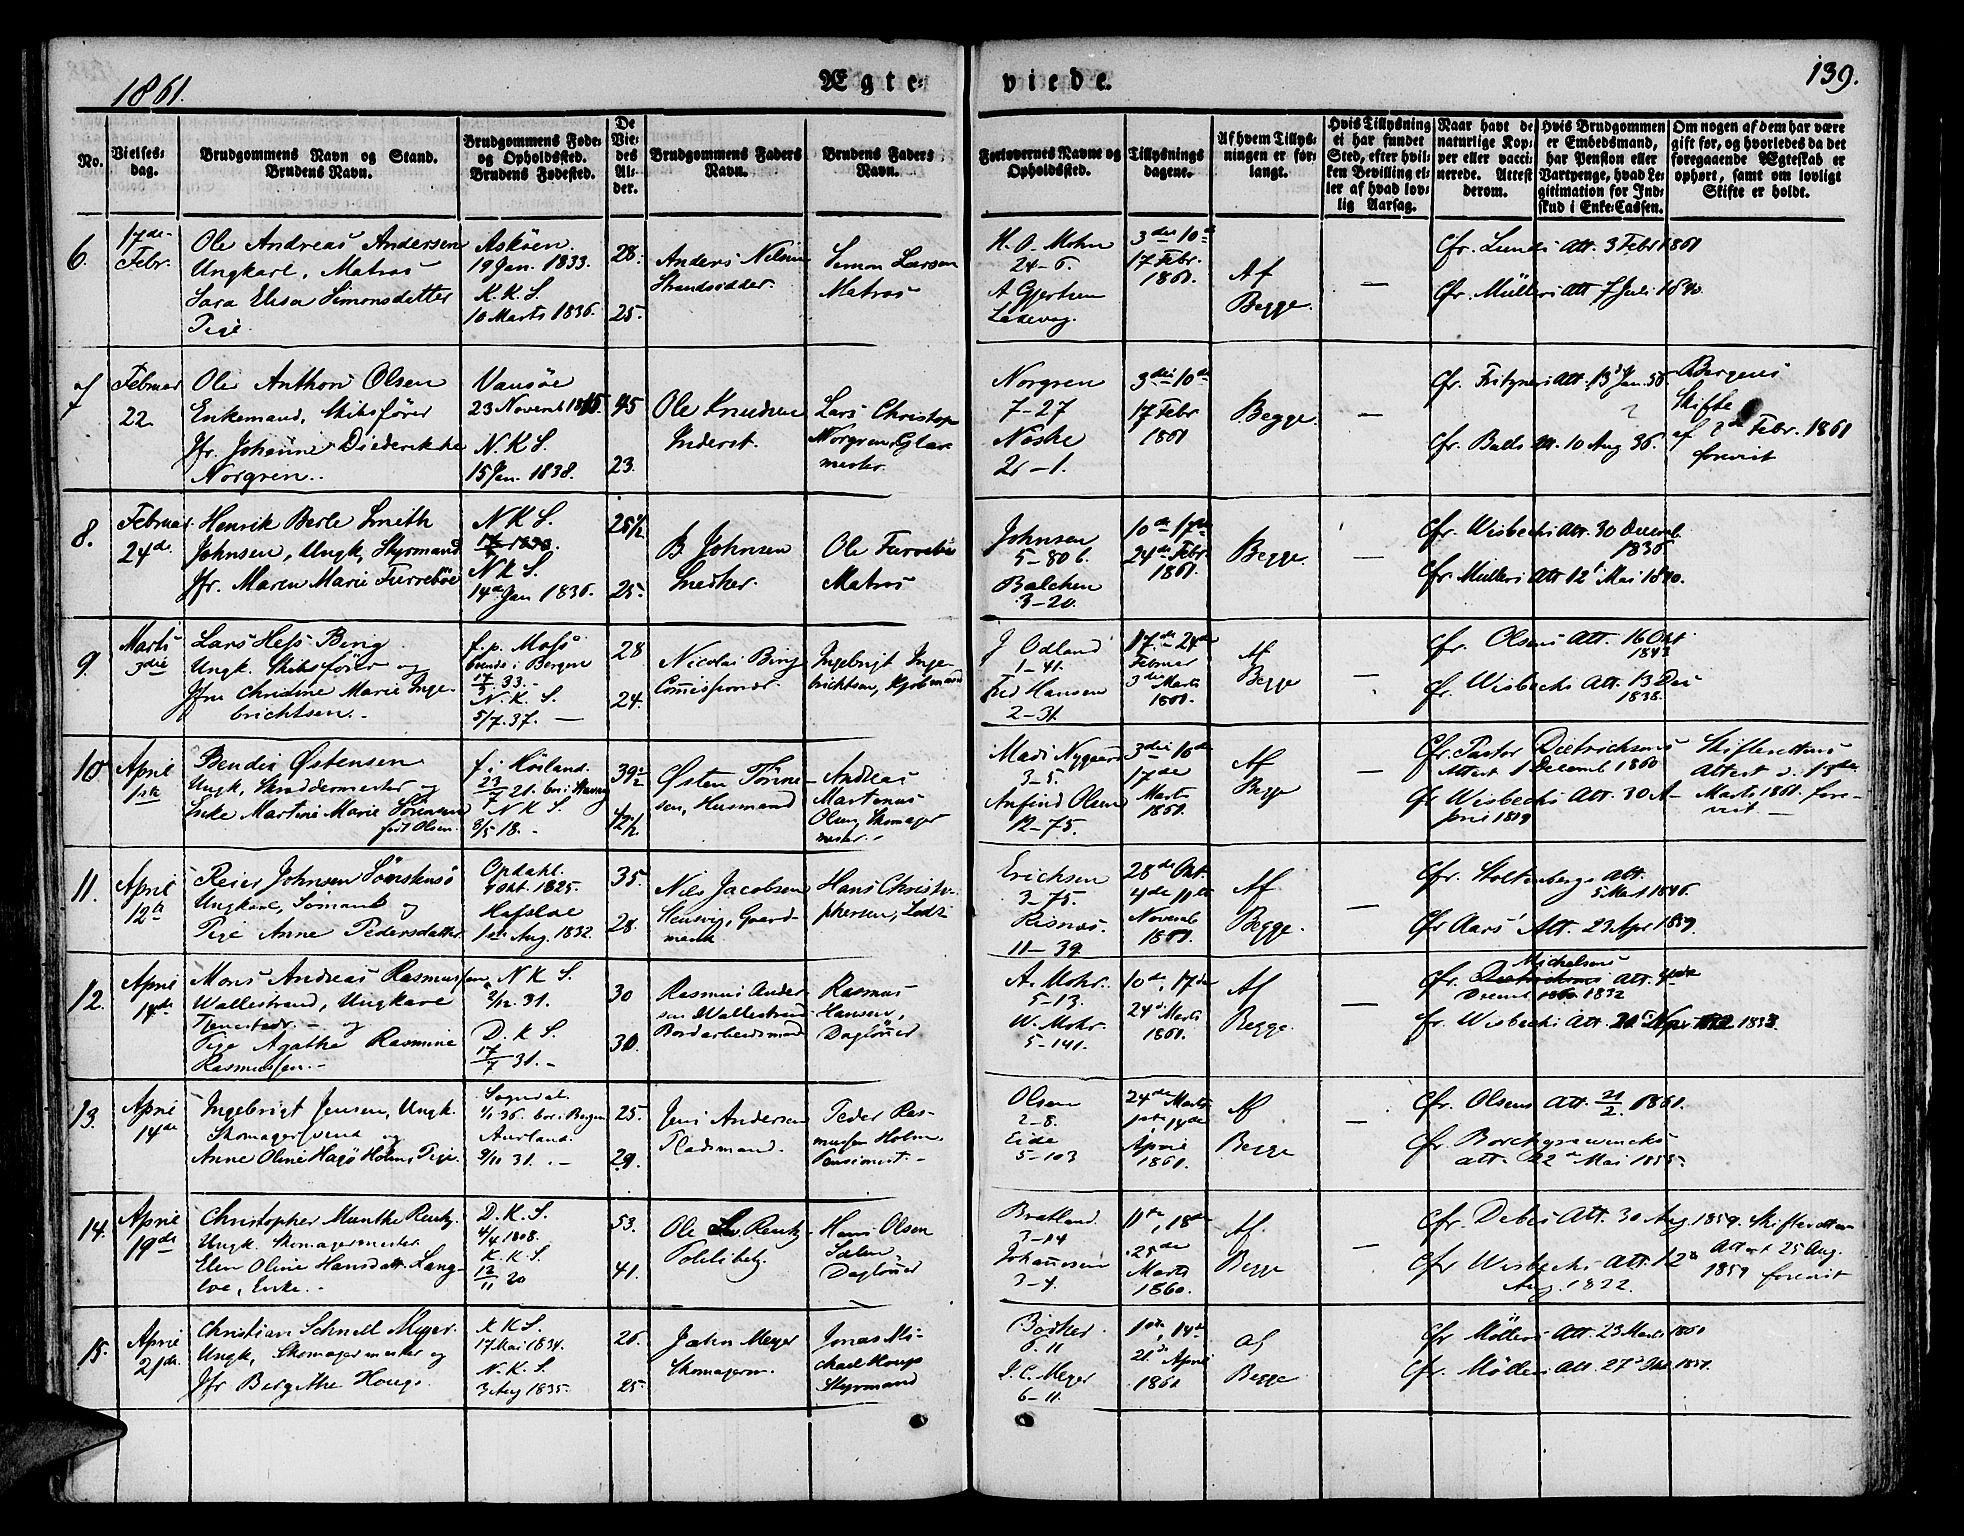 1861.
Ægte-
viede.
139.
No.
Vielses-
dag.
Brudgommens Navn og Stand.
Brudens Navn.
Brudgommens Føde-
og Opholdssted.
Brudens Fødested.
De
Vie-
des
Al-
der.
Brudgommens Faders
Navn.
Brudens Faders
Navn.
Forlovernes Navne og
Opholdssted.
Tillysnings
dagene.
Af hvem Tillys-
ningen er for-
langt.
Hvis Tillysning
ei har fundet
Sted, efter hvil-
ken Bevilling el-
ler af hvad lov-
lig Aarsag.
Naar havt de
naturlige Kop-
per eller vacci-
nerede. Attest
derom.
Hvis Brudgommen
er Embedsmand,
har Pension eller
Vartpenge, hvad Le-
gitimation for Ind-
skud i Enke-Cassen.
Om nogen af dem har være
gift før, og hvorledes da det
foregaaende Ægteskab er
ophørt, samt om lovligt
Skifte er holdt.
6.
17de
Febr.
Ole Andreas Andersen
Ungkarl, Matros
Sara Elisa Simonsdatter
Pige
Askøen.
19 Jan. 1833.
K. K. S.
10 Marts 1836.
28.
25.
Anders Nilsen
Strandsidder.
Simon Larsen
Matros
H. O. Mohn
24-6.
A Gjertsen
Laxevaag.
3die 10de
17 Febr.
1861.
Af
Begge.
—
Cfr. Lunds Att. 3 Febr 1861
Cfr. Müllers Att 7 Juli 1840.
Februar
22
Ole Anthon Olsen
Enkemand, Skibsfører
Jfr. Johanne Diederikke
Norgren.
23 Novemb
N. K. S.
15 Jan. 1838.
45
23.
Ole Knudsen
Inderst.
Lars Christoph
Norgren, Glar-
mester.
Norgren
7-27
Naske
21-1.
3die 10de
17 Febr
1861
Begge.
—
Cfr. Balds Att. 10 Aug 36.
Bergens
Skifte
af Febr. 1861
forevist
8.
Februar
24de
Henrik Berle Smith
Johnsen, Ungk, Styrmand
Jfr. Maren Marie Furrebøe
N K S.
N K S.
14de Jan 1836.
25 1/2
25.
B. Johnsen
Snedker.
Ole Furrebøe
Matros
Johnsen
5-806.
Balchen
3-20.
10de 17de
24de Febr.
1861.
Begge.
—
Cfr. Wisbechs Att. 30 Decemb.
1836
Cfr. Müllers Att 12t Mai 1840.
9
Marts
3die
Lars Hess Bing
Ungk. Skibsfører og
Jfru Christine Marie Inge-
brichtsen.-
17/5 33.-
N. K. S.
5/7. 37. —
28
24.
Nicolai Bing
Ingebrigt Inge-
brichtsen, Kjøbmand
J Odland
1-41.
Fred Hansen
2-31.
17de 24de
Februar
3die Marts
1861.
Af
Begge
—
Cfr. Olsens Att. 16 Okt
1843
Cfr. Wisbechs Att. 13 Dec
1838.
10
April
1ste
Bendix Østensen
Ungk, Skræddermester og
Enke Martine Marie Sørensen
født Olsen
23/7 21.
N K S.
8/5 18.-
39 1/2
42 1/2.
Østen Tønne-
sen, Husmand
Andreas
Martinus
Olsen, Skomager
mester.-
Mads Nygaard
3-5.
Anfind Olsen
12-75.
3die 10de
17de
Marts
1861.
Af
Begge
—
Cfr. Pastor Dietrichsons
Attest 1 Decemb 1860
Cfr Wisbechs Att. 30 A-
Skifterettens
Attest d. 13de
Marts 1861. fore-
vist.-
11.
April
12te
Reier Johnsen
Ungkarl, Sømand og
Pige Anne Pedersdatter
Opdahl.
Okt. 1825.
Hafsloe
1ste Aug. 1832.
35.
28.
Nils Jacobsen
Gaard-
mand
Hans Christo-
phersen, Lods
Erichsen
3-75.
Risnæs.
11-39.
28de Okt.
4de 11te
Novemb
Af
Begge.
—
Cfr. Stoltenbergs Att.
5 Mart 1846.
Cfr Aars' Att. 23 Apr 1859.
12.
April
14de
Mons Andreas Rasmussen
Wallestrand, Ungkarl
og
Pige Agathe Rasmine
Rasmussen.-
N K S.
2/12. 31.
D. K. S.
17/7 31.-
30
30.
Rasmus Ander-
sen Wallestrand
Bordarbeidsmand
Rasmus
Hansen,
Dagløner
A. Mohr.
5-13.
W. Mohr.
5-141.
10de, 17de
24de Marts
1861.
Af
Begge.
—
Michelsens
Cfr. Dietrichsons Att. 4de
Decemb 1832
Cfr. Wisbechs Att. 1833
13.
April
14de
Ingebrigt Jensen, Ungk.
Skomagersvend og
Anne Oline Holm, Pige.
Sogndal.
1/1. 36. bor i Bergen
Aurland.
9/11 31.-
25.
29.
Jens Andersen
Pladsmand.
Peder Ras-
mussen Holm
Pensionist.-
Olsen
2-8.
Eide
5-103
24de Marts
April
1861.
Af
Begge
—
Cfr. Olsens Att. 21/2. 1861.
Cfr. Borchgrevincks
Att. 22de Mai 1855.
14.
April
19de
Christopher Munthe Rentz.
Ungk. Skomagermester
Elen Oline Hansdatt. Lang-
loe, Enke.-
D. K. S.
4/4 1808.
K. K. S.
12/11 20
53.
41.
Ole Rentz
Politibetj.
Hans Olsen
Dagløner
Bratland.
3-14
Johannesen
3-4.
11te, 18de
25de
Marts
1860.
Af.
Begge
—
Cfr. Debes Att. 30 Aug. 1859. Skifteretten
Cfr Wisbechs Att. 12te
Aug. 1822.
Attest 25 Aug.
1859 forevist
15.
April
21de
Christian Schnell Meyer.
Ungk, Skomagermester og
Jfr Bergithe Houge
K K S.
17 Mai 1834.
N. K. S.
3 Aug 1835.
26.
25.
Jahn Meyer
Skomagerm.
Jonas Mi-
chael Houge
Styrmand
6-11
J. C. Meyer
6-11.
14de
21de April
1861
af
Begge.
—
Cfr Møllers Att. 23 Marts 1861
Cfr. Møllers Att. 27de